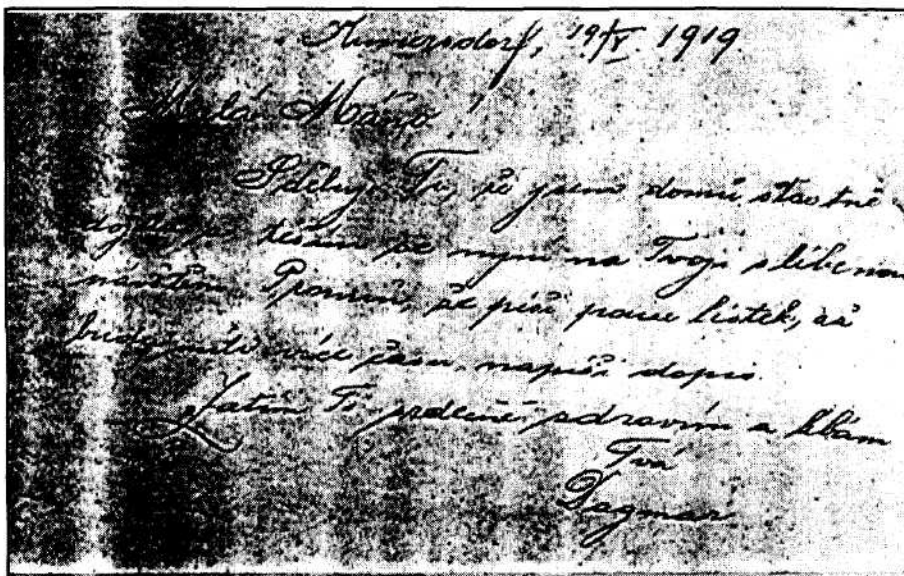 Kumersdorf, 19/V. 1919.
Milá Mánžo!
Sděluji Ti, že jsem domů šťastně
dojela, a těším se nyní na Tvoji slíbenou
návštěvu. Promiň, že píši pouze lístek, až
budu míti více času, napíši dopis.
Zatím Tě srdečně zdravím a líbám
Tvá
Dagmar.